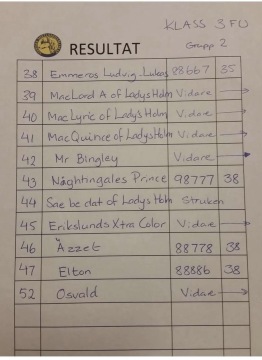 KLASS 3 FU
Grupp 2
RESULTAT
38 Emmeros Ludvig-Lukas 88667 35
39 MacLord A of Ladys Holm Vidare →
40 MacLyric of Ladys Holm Vidare →
41 MacQuince of Ladys Holm Vidare →
42 Mr Bingley Vidare →
43 Nightingales Prince 98777 38
44 See be dat of Ladys Holm Struken
45 Erikslunds Xtra Color Vidare →
46 Azzet 88778 38
47 Elton 88886 38
52 Osvald Vidare →